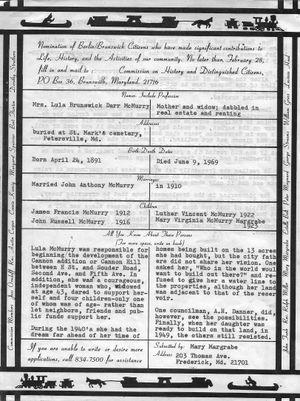 Nomination of Berlin/Brunswick Citizens who have made significant contributions to
Life, History, and the Activities of our community. No later than, February 28,
fill in and mail to: Commission on History and Distinguished Citizens,
PO Box 36, Brunswick, Maryland, 21716
Names: Include Profession
Mrs. Lula Brunswick Darr McMurry
Mother and widow; dabbled in
real estate and renting
Addresses
Buried at St. Mark's cemetery,
Petersville, Md.
Birth-Death Dates
Born April 24, 1891
Died June 9, 1969
Marriages
Married John Anthony McMurry
in 1910
Children
James Francis McMurry 1912
John Russell McMurry 1916
Luther Vincent McMurry 1922
Mary Virginia McMurry Margrabe
1923
All You Know About This Person:
(For more space, write on back)
Lula McMurry was responsible for
beginning the development of the
Cannon addition or Cannon Hill
between H St. and Souder Road,
Second Ave. and Fifth Ave. In
addition, she was a courageous,
independent woman who, widowed
at age 43, dared to support her-
self and four children-only one
of whom was of age- rather than
let neighbors, friends and pub-
lic funds support her.
During the 1940's she had the
dream far ahead of her time of
homes being built on the 13 acres
she had bought, but the city fath-
ers did not share her vision. One
asked her, "Who in the world would
want to build out there?" and re-
fused to give her a water line to
the properties, although her land
was adjacent to that of the reser-
voir.
One councilman, A.R. Danner, did,
however, see the possibilities.
Finally, when her daughter was
ready to build on that land, in
1949, the others still resisted.
If you are unable to write or desire more
applications, call 834-7500 for assistance
Submitted by: Mary Margrabe
Address: 203 Thomas Ave.
Frederick, Md. 21701